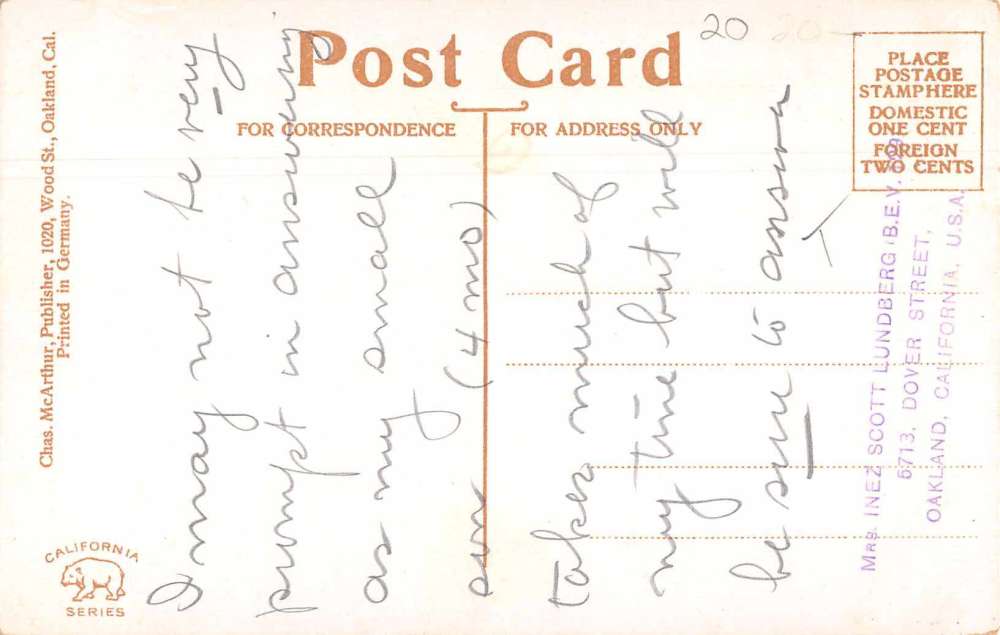 Post Card
FOR CORRESPONDENCE
FOR ADDRESS ONLY
20
20
PLACE
POSTAGE
STAMP HERE
DOMESTIC
ONE CENT
FOREIGN
TWO CENTS
Chas. McArthur, Publisher, 1020, Wood St., Oakland, Cal.
Printed in Germany.
CALIFORNIA
SERIES
I may not be very
prompt in answering
as my small
son (4 mo)
takes much of
my time but will
be sure to answer
MRS. INEZ SCOTT LUNDBERG (B.E.V. 529)
5713, DOVER STREET,
OAKLAND, CALIFORNIA, U.S.A.